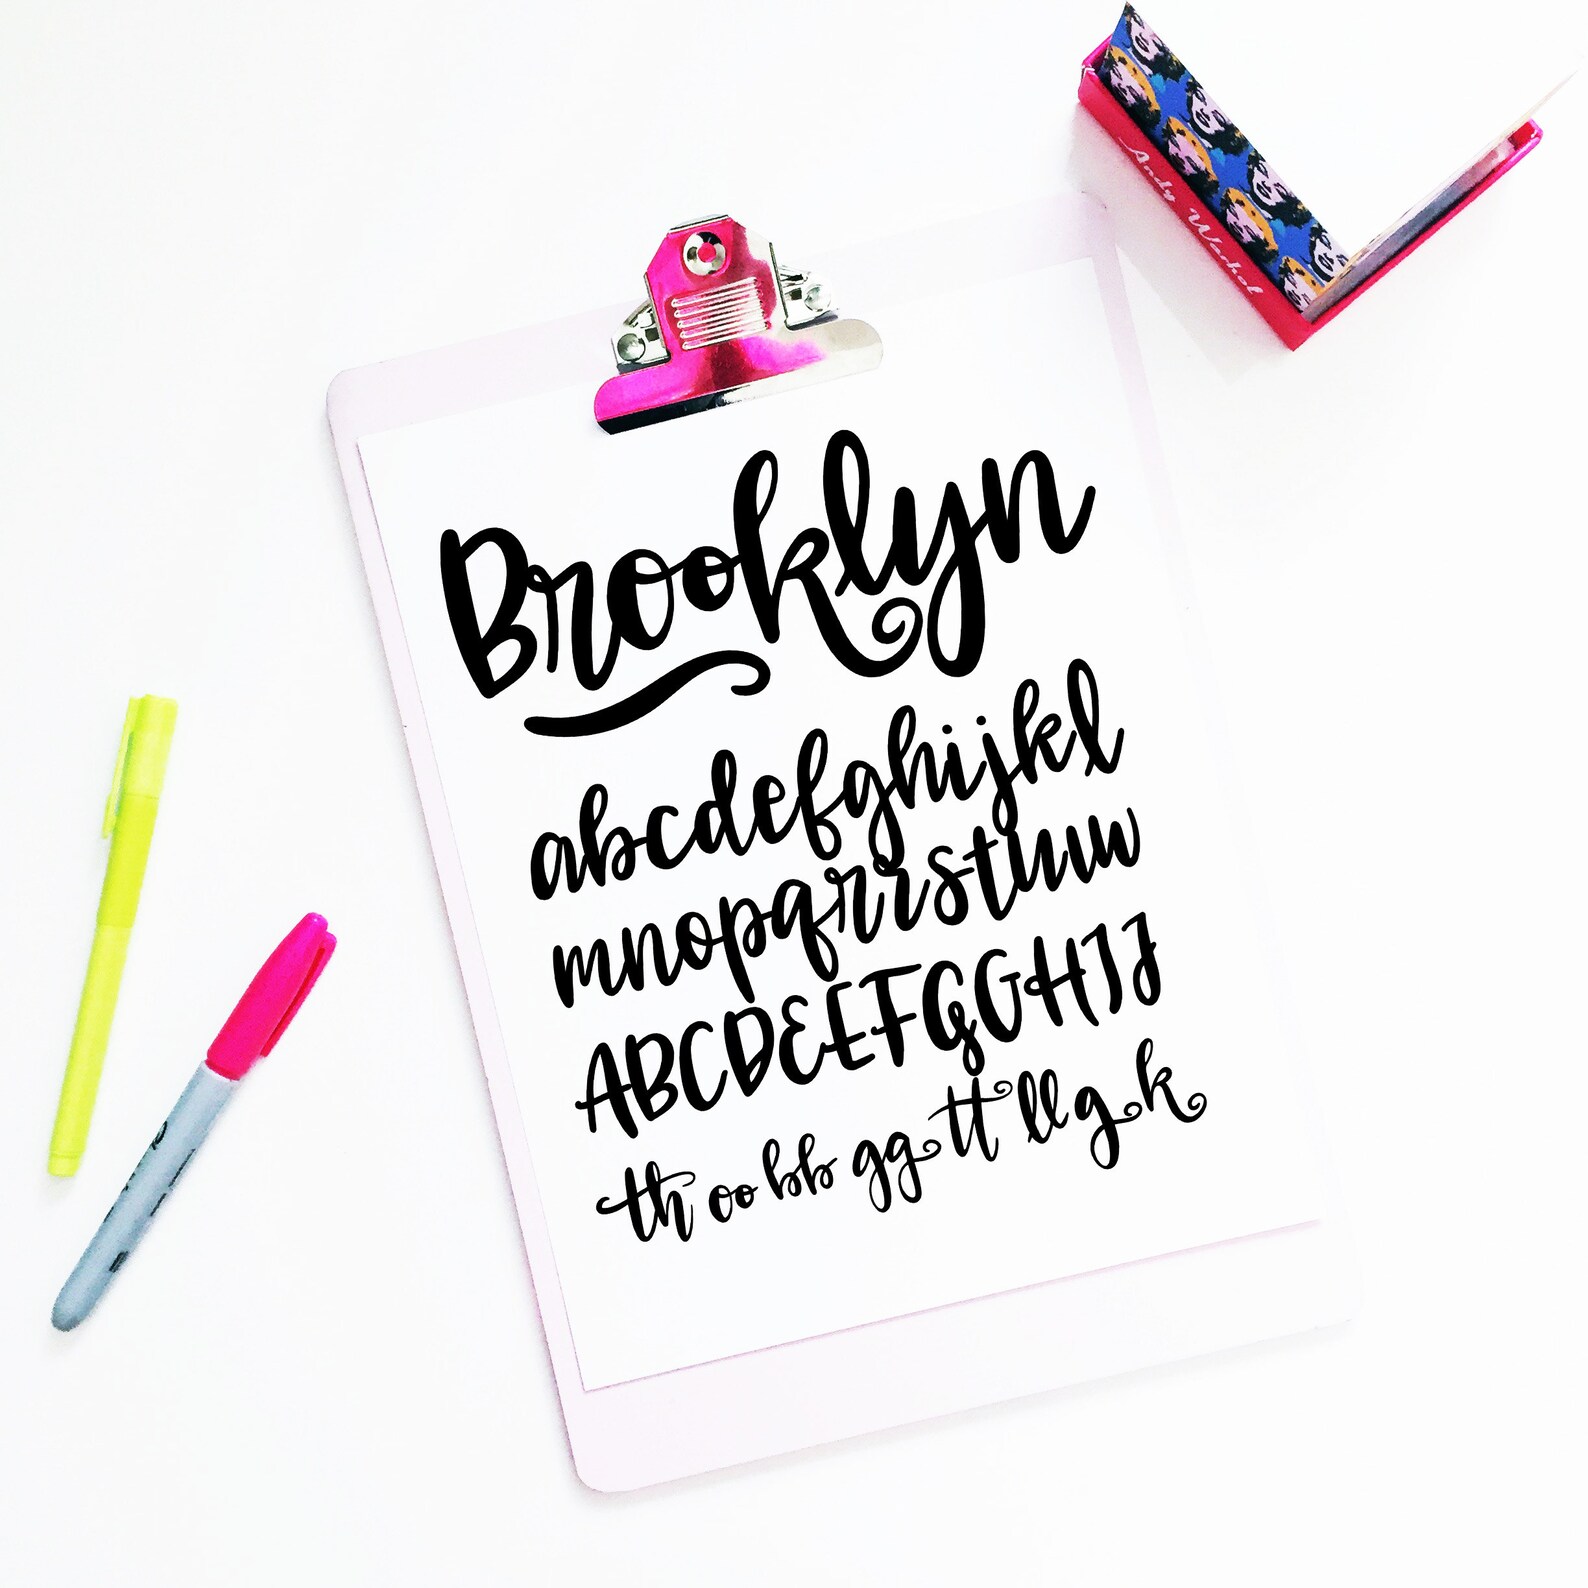 Andy Warhol
Brooklyn
abcdefghijkl
mnopqrrstuvw
ABCDEEFGGHIJ
th oo bb gg tt ll g k